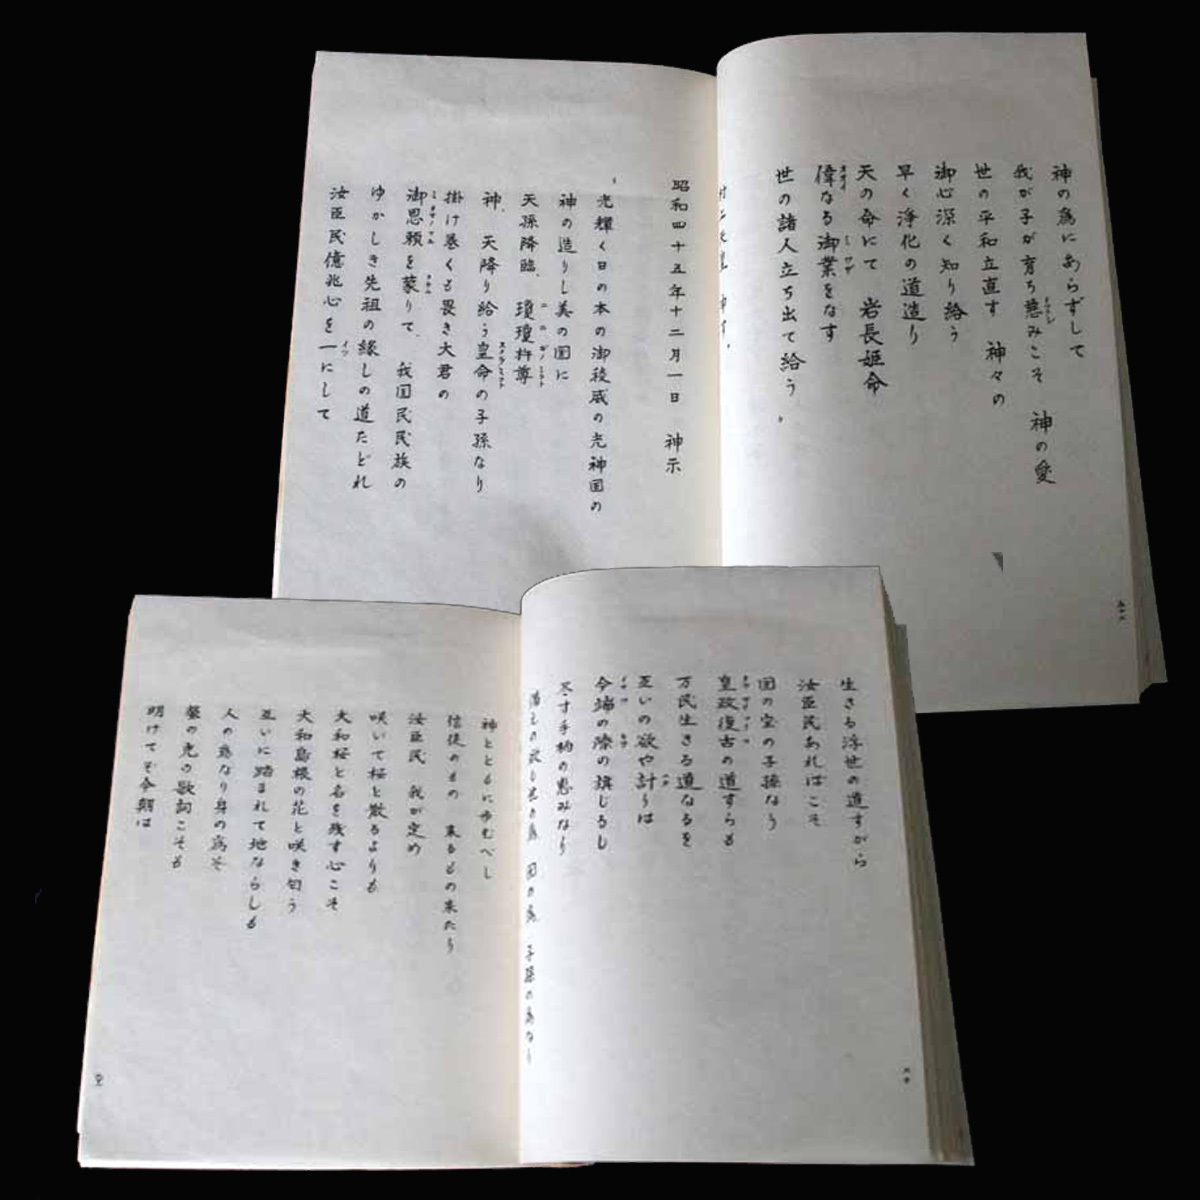 神の為にあらずして
我が子が育ち慈みこそ 神の愛
世の平和立直す 神々の
御心深く知り給う
早く浄化の道造り
天の命にて 岩長姫命
偉なる御業をなす
世の諸人立ち出て給う、
昭和四十五年十二月一日 神示
光輝く日の本の御稜威の光神国の
神の造りし美の国に
天孫降臨、瓊瓊杵尊
神、天降り給う皇命の子孫なり
掛け巻くも畏き大君の
御恩頼を蒙りて、我国民民族の
ゆかしき先祖の縁しの道たどれ
汝臣民億兆心を一にして
生きる浮世の道すがら
汝臣民あればこそ
国の宝の子孫なり
皇政復古の道すらも
万民生きる道なるを
互いの欲や計りは
今端の際の旗じるし
尽す手柄の恵みなり
国の為 子孫の為なり
神とともに歩むべし
信徒のもの 来るもの来たり
汝臣民 我が定め
咲いて桜と散るよりも
大和桜と名を残す心こそ
大和島根の花と咲き匂う
互いに踏まれて地ならしも
人の為なり身の為ぞ
蛍の光の歌詞こそも
明けてぞ今朝は